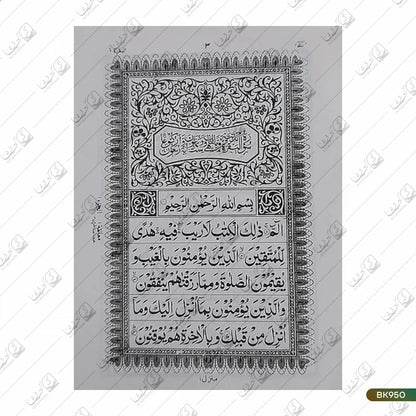 ٣
بِسْمِ اللهِ الرَّحْمٰنِ الرَّحِيْمِ
الٓمّٓ ذٰلِكَ الْكِتٰبُ لَا رَيْبَ فِيْهِ هُدًى
لِّلْمُتَّقِيْنَ الَّذِيْنَ يُؤْمِنُوْنَ بِالْغَيْبِ وَ
يُقِيْمُوْنَ الصَّلٰوةَ وَمِمَّا رَزَقْنٰهُمْ يُنْفِقُوْنَ
وَالَّذِيْنَ يُؤْمِنُوْنَ بِمَآ اُنْزِلَ اِلَيْكَ وَمَآ
اُنْزِلَ مِنْ قَبْلِكَ وَبِالْاٰخِرَةِ هُمْ يُوْقِنُوْنَ
منزل ١
BK950